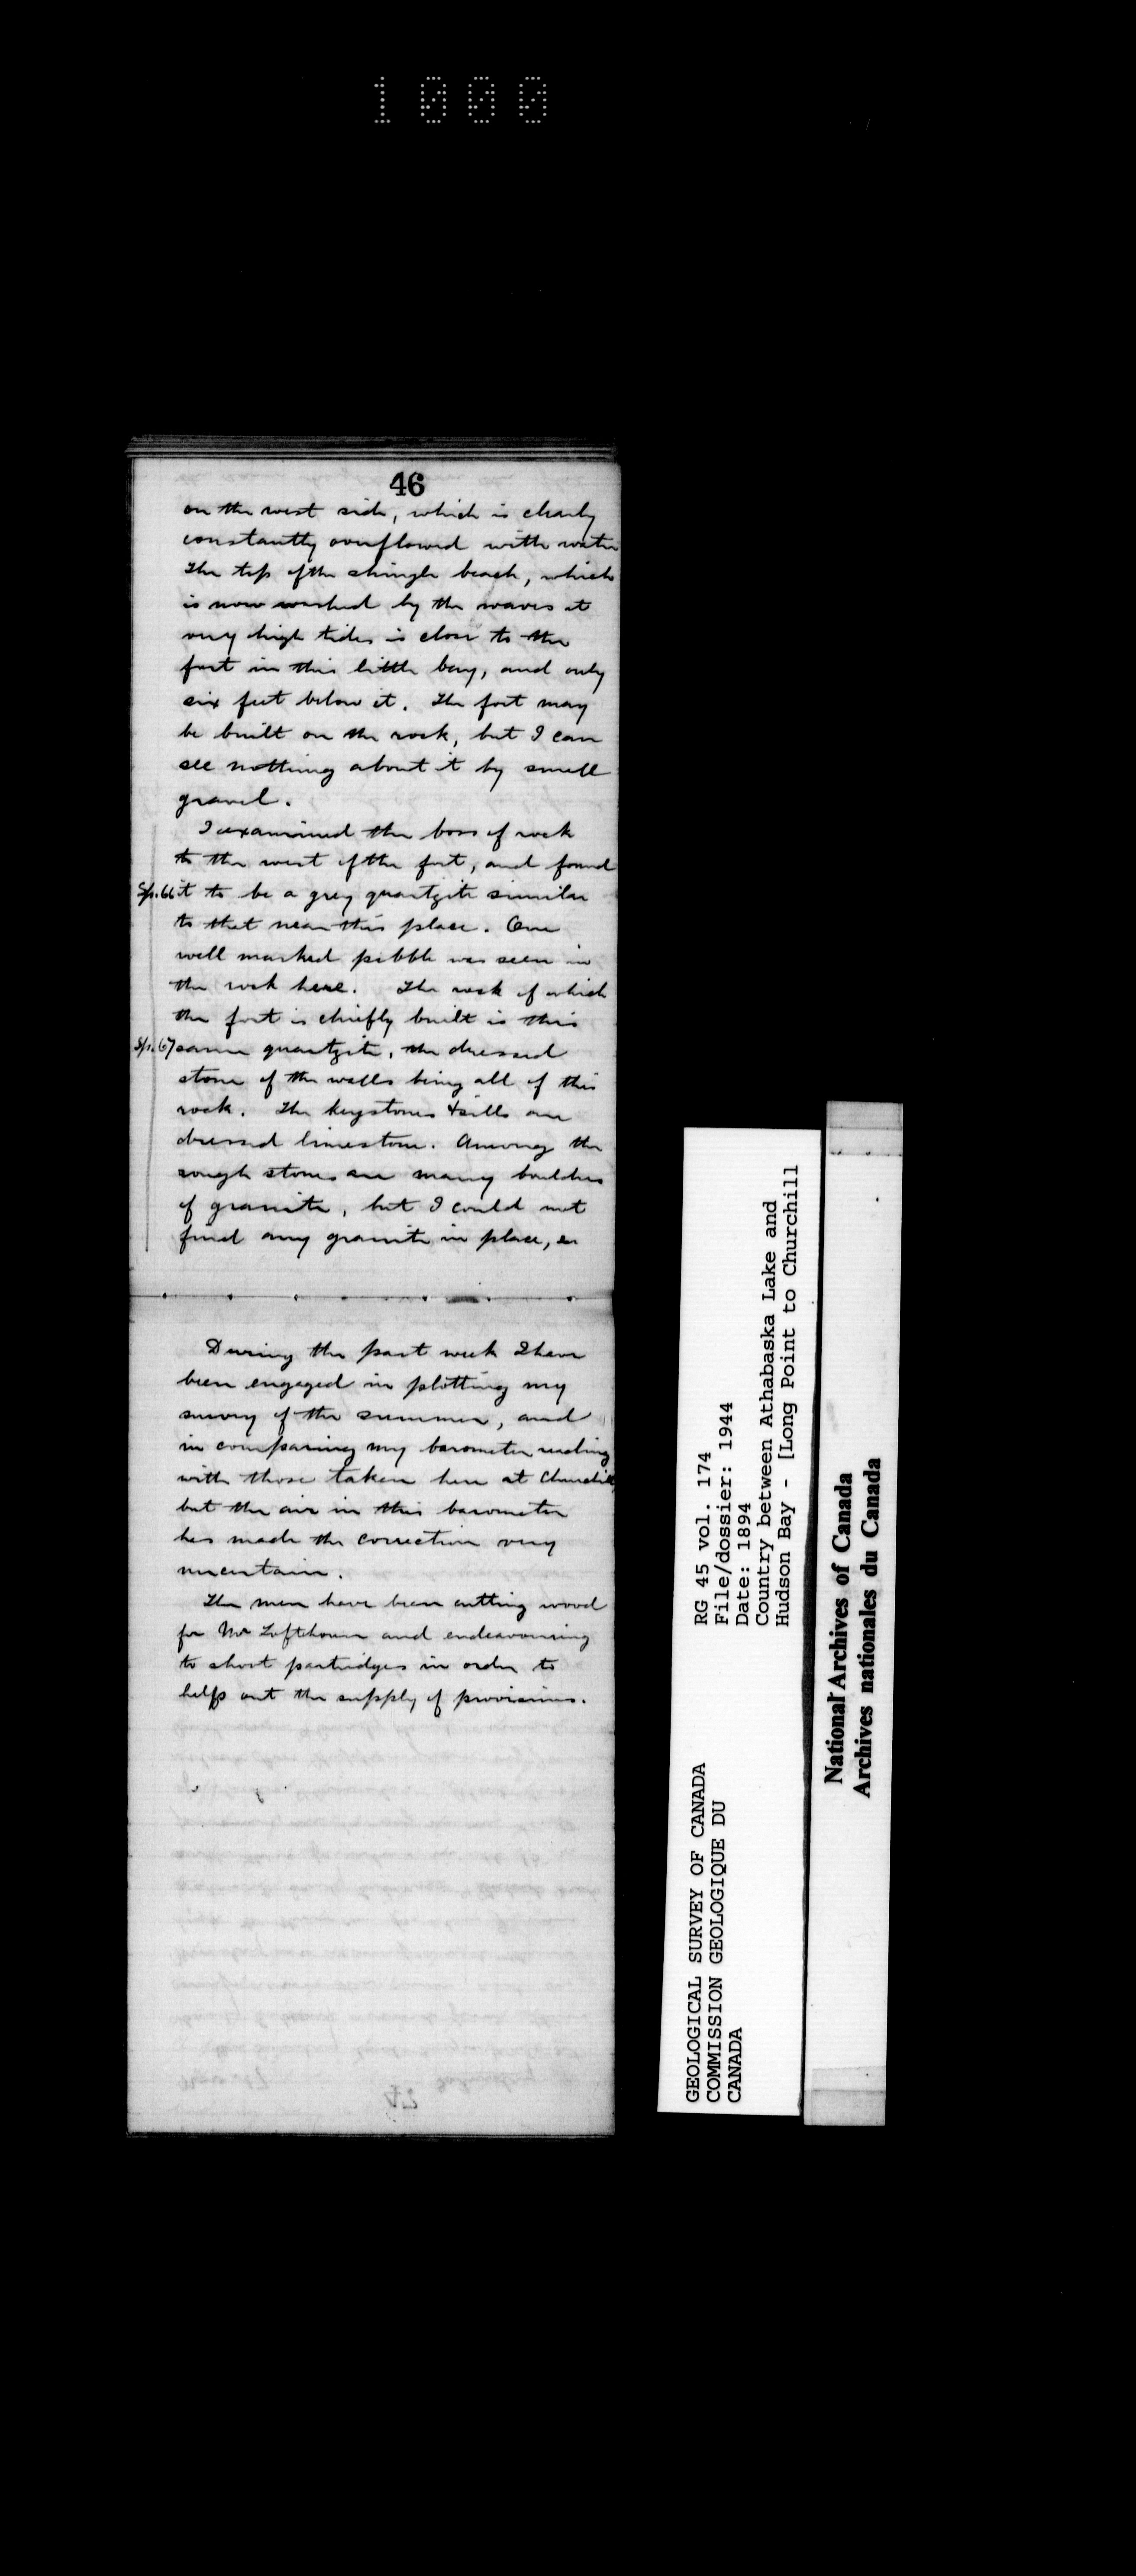 1000
46
on the west side, which is clearly
constantly overflowed with water
The top of the shingle beach, which
is now washed by the waves at
very high tides is close to the
fort in this little bay, and only
six feet below it. The fort may
be built on the rock, but I can
see nothing about it by small
gravel.
I examined the boss of rock
to the west of the fort, and found
Sp. 66 it to be a grey quartzite similar
to that near this place. One
well marked pebble was seen in
the rock here. The rock of which
the fort is chiefly built is this
Sp. 67 same quartzite, the dressed
stone of the walls being all of this
rock. The keystones & sills are
dressed limestone. Among the
rough stones are many boulders
of granite, but I could not
find any granite in place, en
During the past week I have
been engaged in plotting my
survey of the summer, and
in comparing my barometer reading
with those taken here at Churchill
but the air in this barometer
has made the correction very
uncertain.
The men have been cutting wood
for Mr Lofthouse and endeavouring
to shoot partridges in order to
help out the supply of provisions.
GEOLOGICAL SURVEY OF CANADA
COMMISSION GEOLOGIQUE DU
CANADA
RG 45 vol. 174
File/dossier: 1944
Date: 1894
Country between Athabaska Lake and
Hudson Bay - [Long Point to Churchill
National Archives of Canada
Archives nationales du Canada